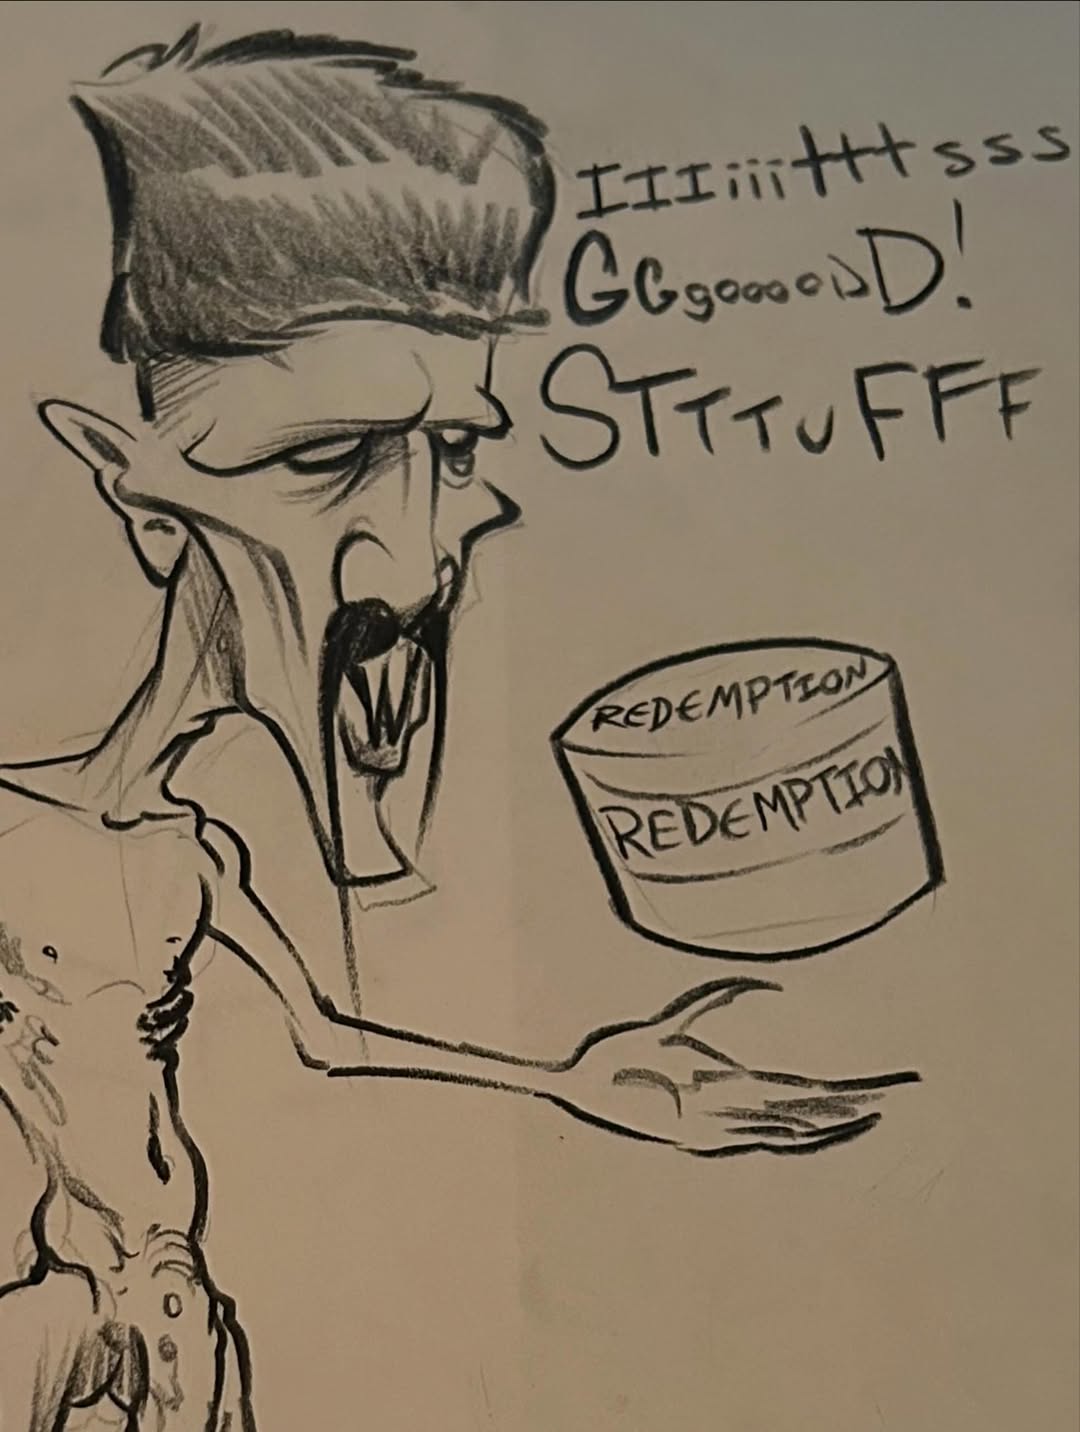 IIIiiitttsss
GGgooooDD!
STTTuFFF
REDEMPTION
REDEMPTION